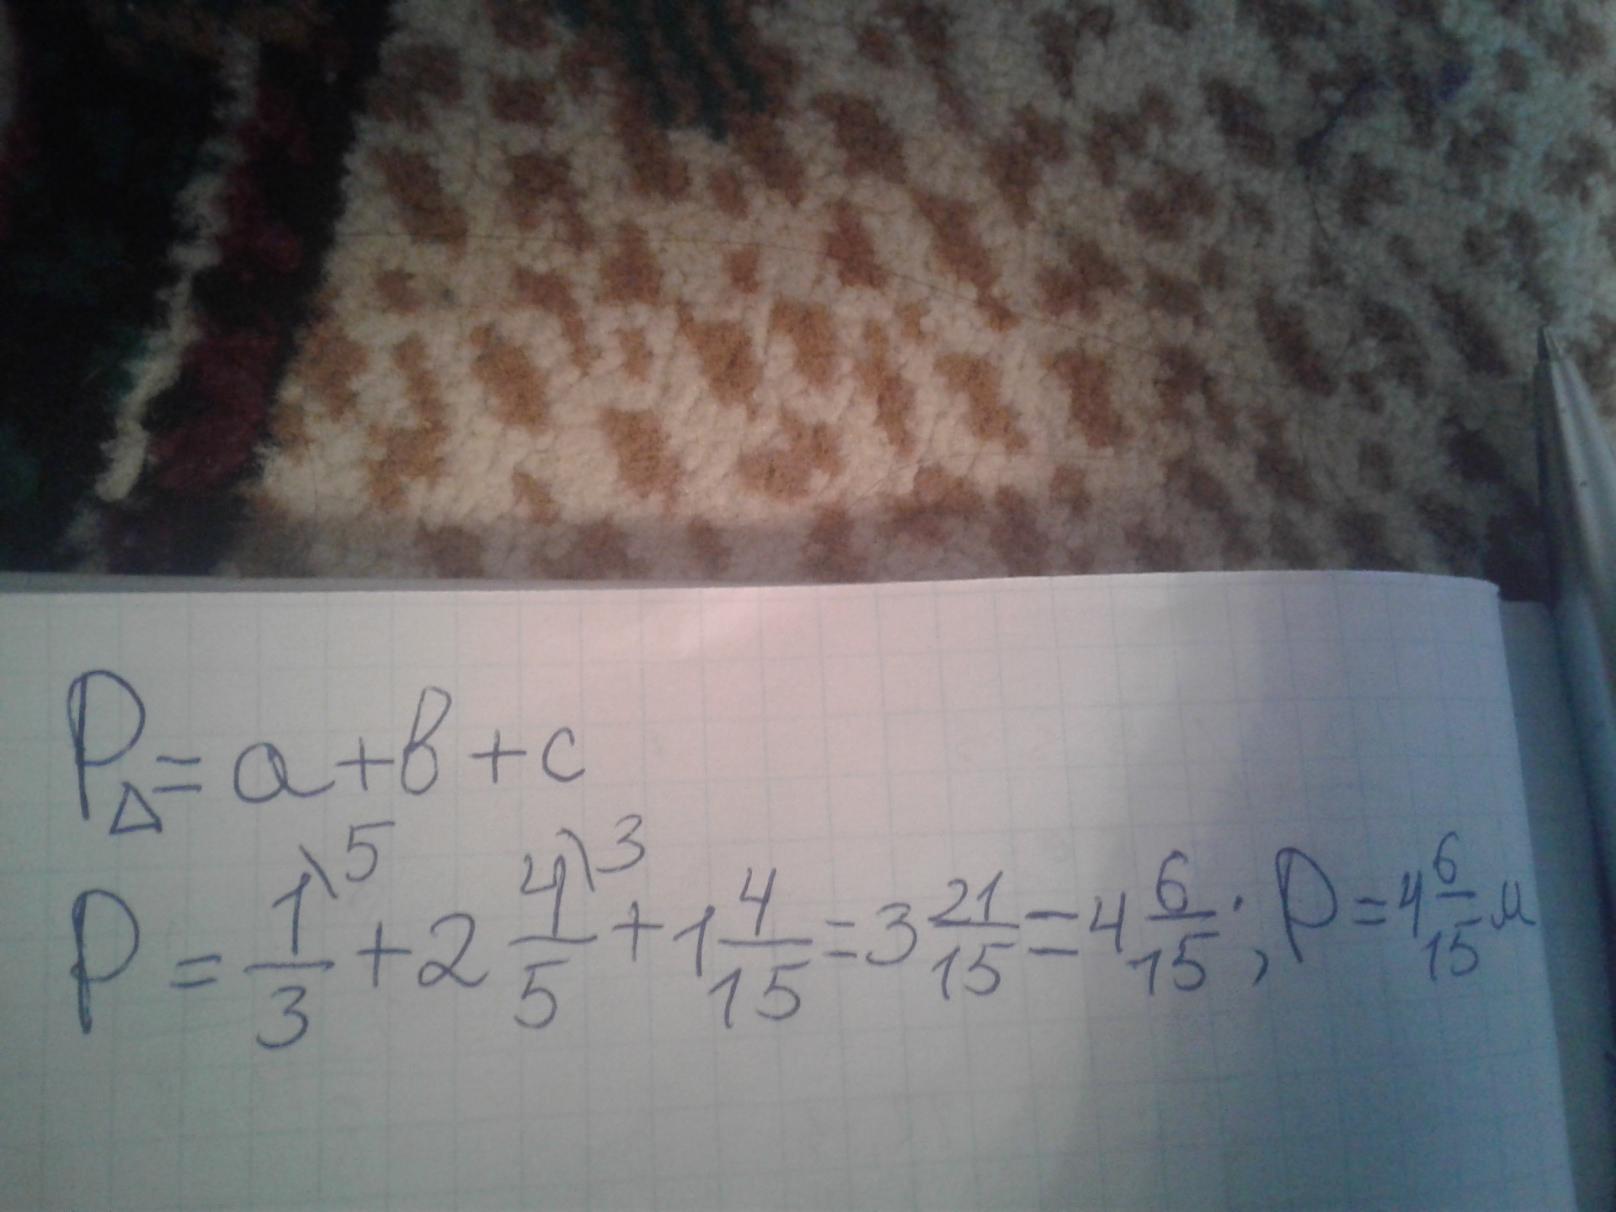 P△=a+b+c
P = 1\5/3 + 2 4\3/5 + 1 4/15 = 3 21/15 = 4 6/15; P = 4 6/15 м